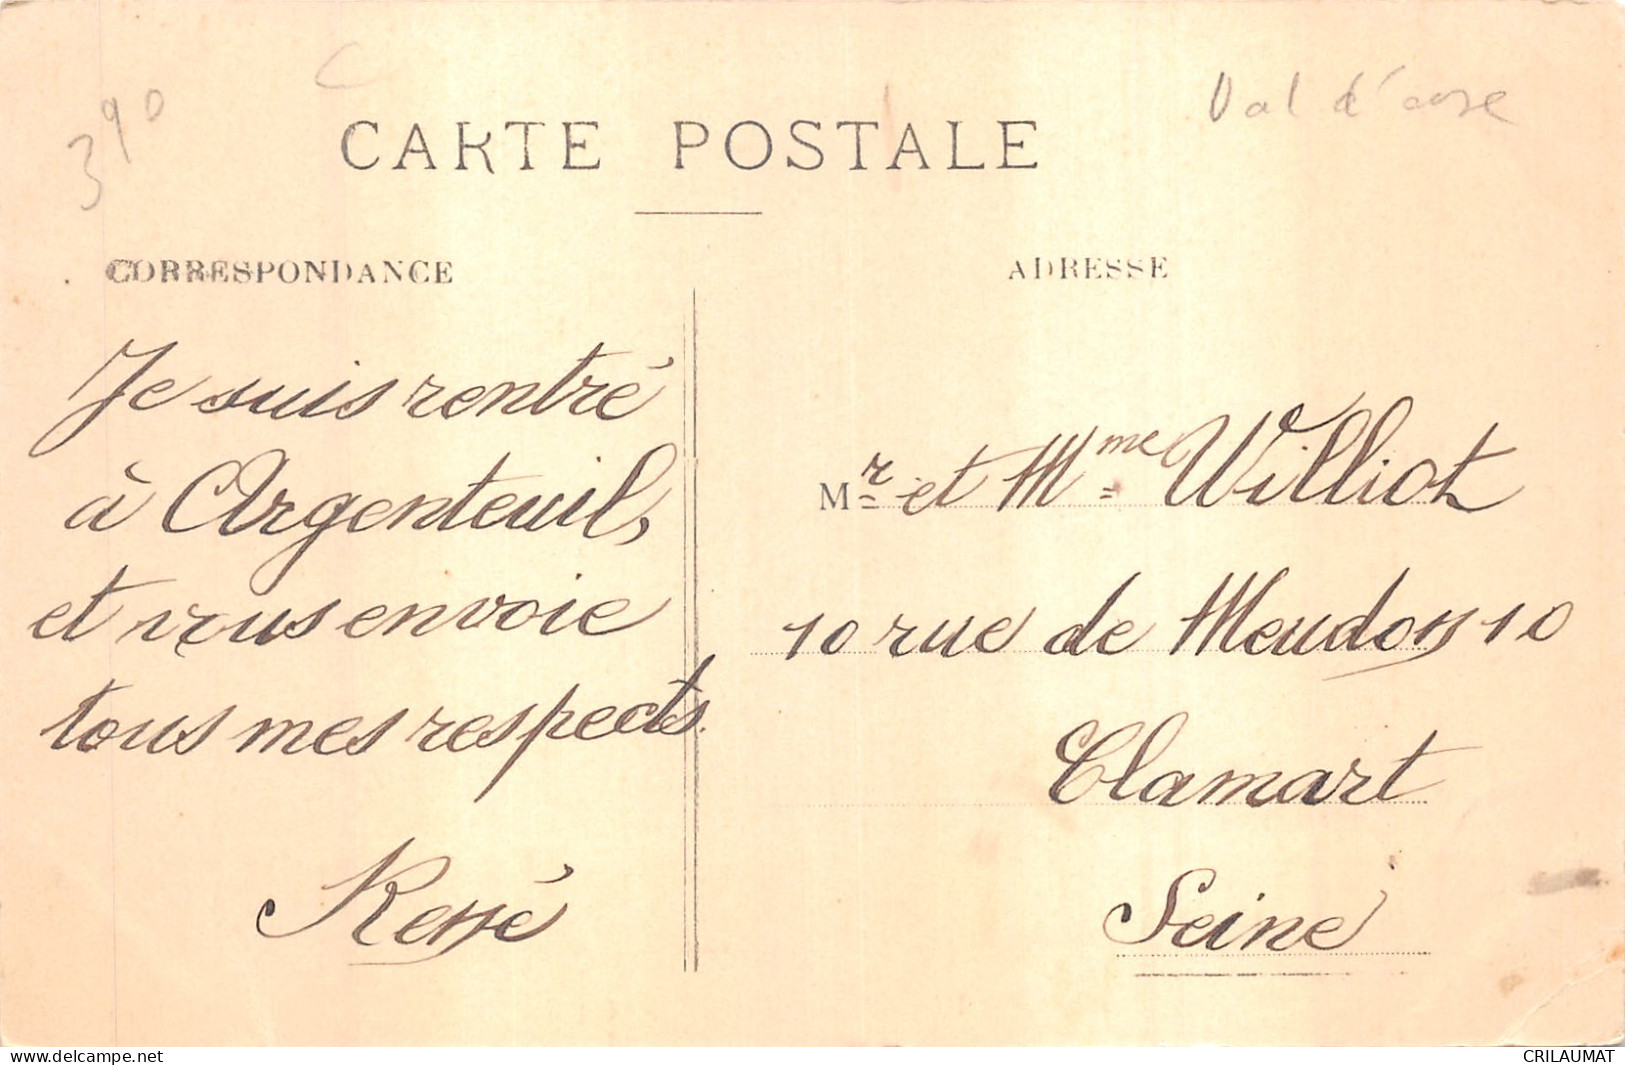 390
C
Val d'oise
CARTE POSTALE
CORRESPONDANCE
ADRESSE
Je suis rentré
à Argenteuil,
et vous envoie
tous mes respects.
René
Mr et Mme Williot
10 rue de Meudon 10
Clamart
Seine
www.delcampe.net
CRILAUMAT